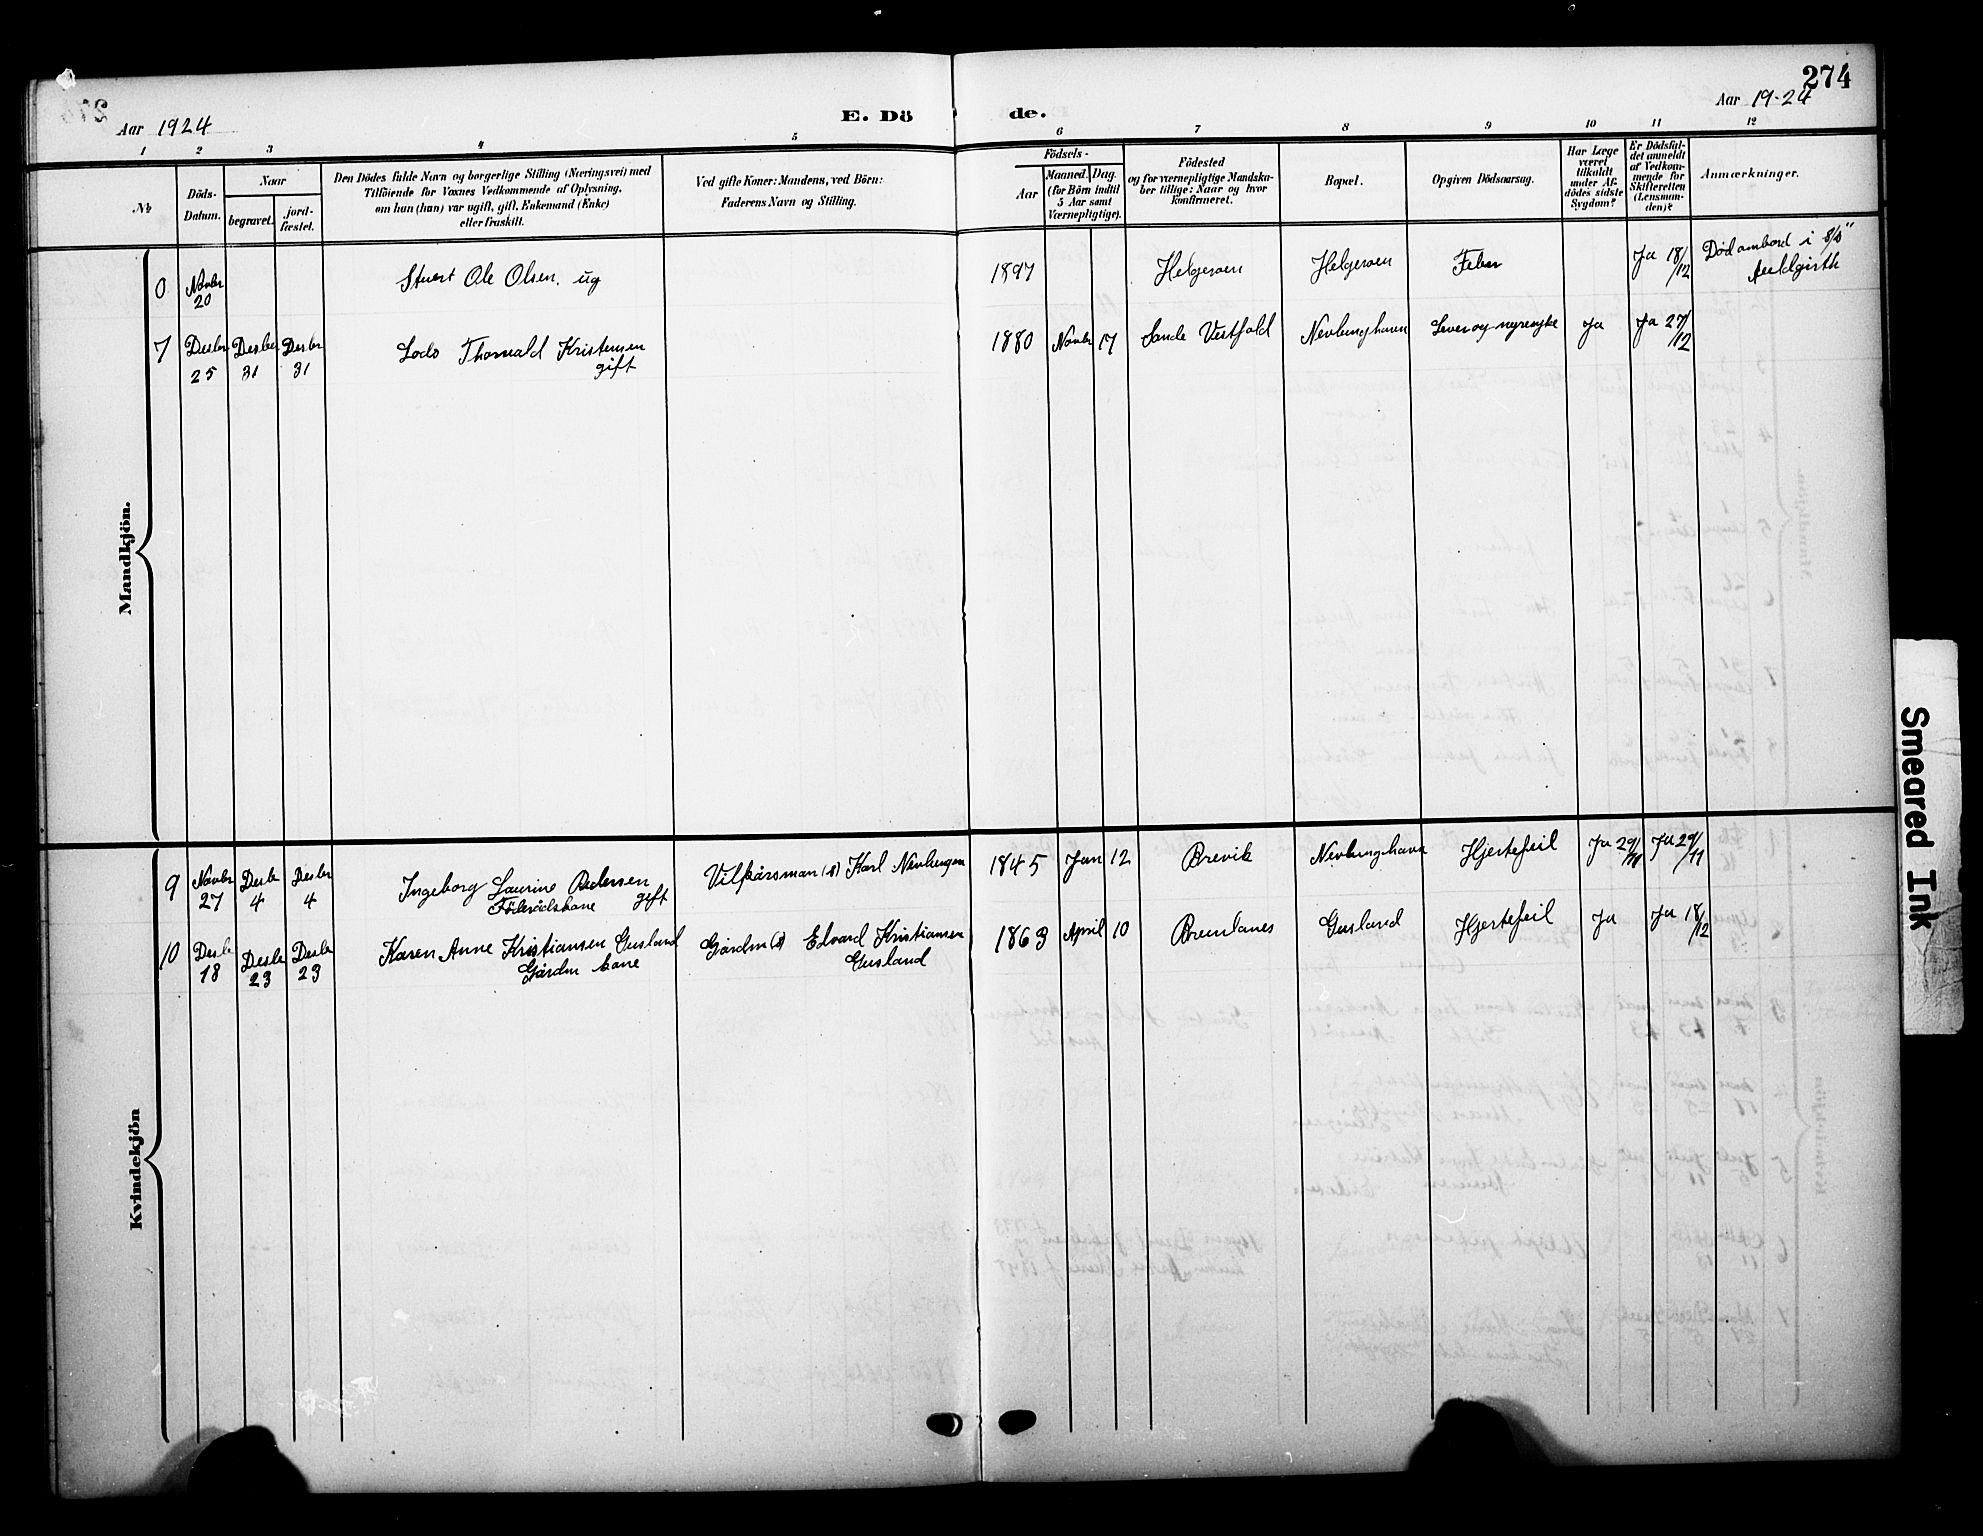 274
Aar 1924
E. Dö de.
Aar 19-24
1 2 3 4 5 6 7 8 9 10 11 12
№
Döds-
Datum.
Naar
begravet.
jord-
fæstet.
Den Dödes fulde Navn og borgerlige Stilling (Næringsvei) med
Tilföiende for Voxnes Vedkommende af Oplysning,
om han (hun) var ugift, gift, Enkemand (Enke)
eller fraskilt.
Ved gifte Koner: Mandens, ved Börn:
Faderens Navn og Stilling.
Födsels-
Aar
Maaned. Dag.
(for Börn indtil
5 Aar samt
Værnepligtige).
Födested
og for værnepligtige Mandska-
ber tillige: Naar og hvor
konfirmeret.
Bopæl.
Opgiven Dödsaarsag.
Har Læge
været
tilkaldt
under Af-
dödes sidste
Sygdom?
Er Dödsfal-
det anmeldt
af Vedkom-
mende for
Skifteretten
(Lensman-
den)?
Anmærkninger.
Mandkjön.
0 Novbr 20 Stuert Ole Olsen. ug 1897 Helgeroen Helgeroen Feber Ja 18/12 Död ombord i S/S"
7 Desbr 25 Desbr 31 Desbr 31 Lods Thorvald Kristensen 1880 Novbr 17 Sande Vestfold Nevlunghavn Lever og nyresyke Ja Ja 27/12
gift
Kvindekjön
9 Novbr 27 Desbr 4 Desbr 4 Ingeborg Laurine Pedersen Vilkårsman (s) Karl Nevlungen 1845 Jan 12 Brevik Nevlunghavn Hjertefeil Ja 29/11 Ja 29/11
Föderådskone gift
10 Desbr 18 Desbr 23 Desbr 23 Karen Anne Kristiansen Gusland Gårdm (s) Edvard Kristiansen 1863 April 10 Brunlanes Gusland Hjertefeil Ja Ja 18/12
Gårdm kone Gusland
Smeared Ink